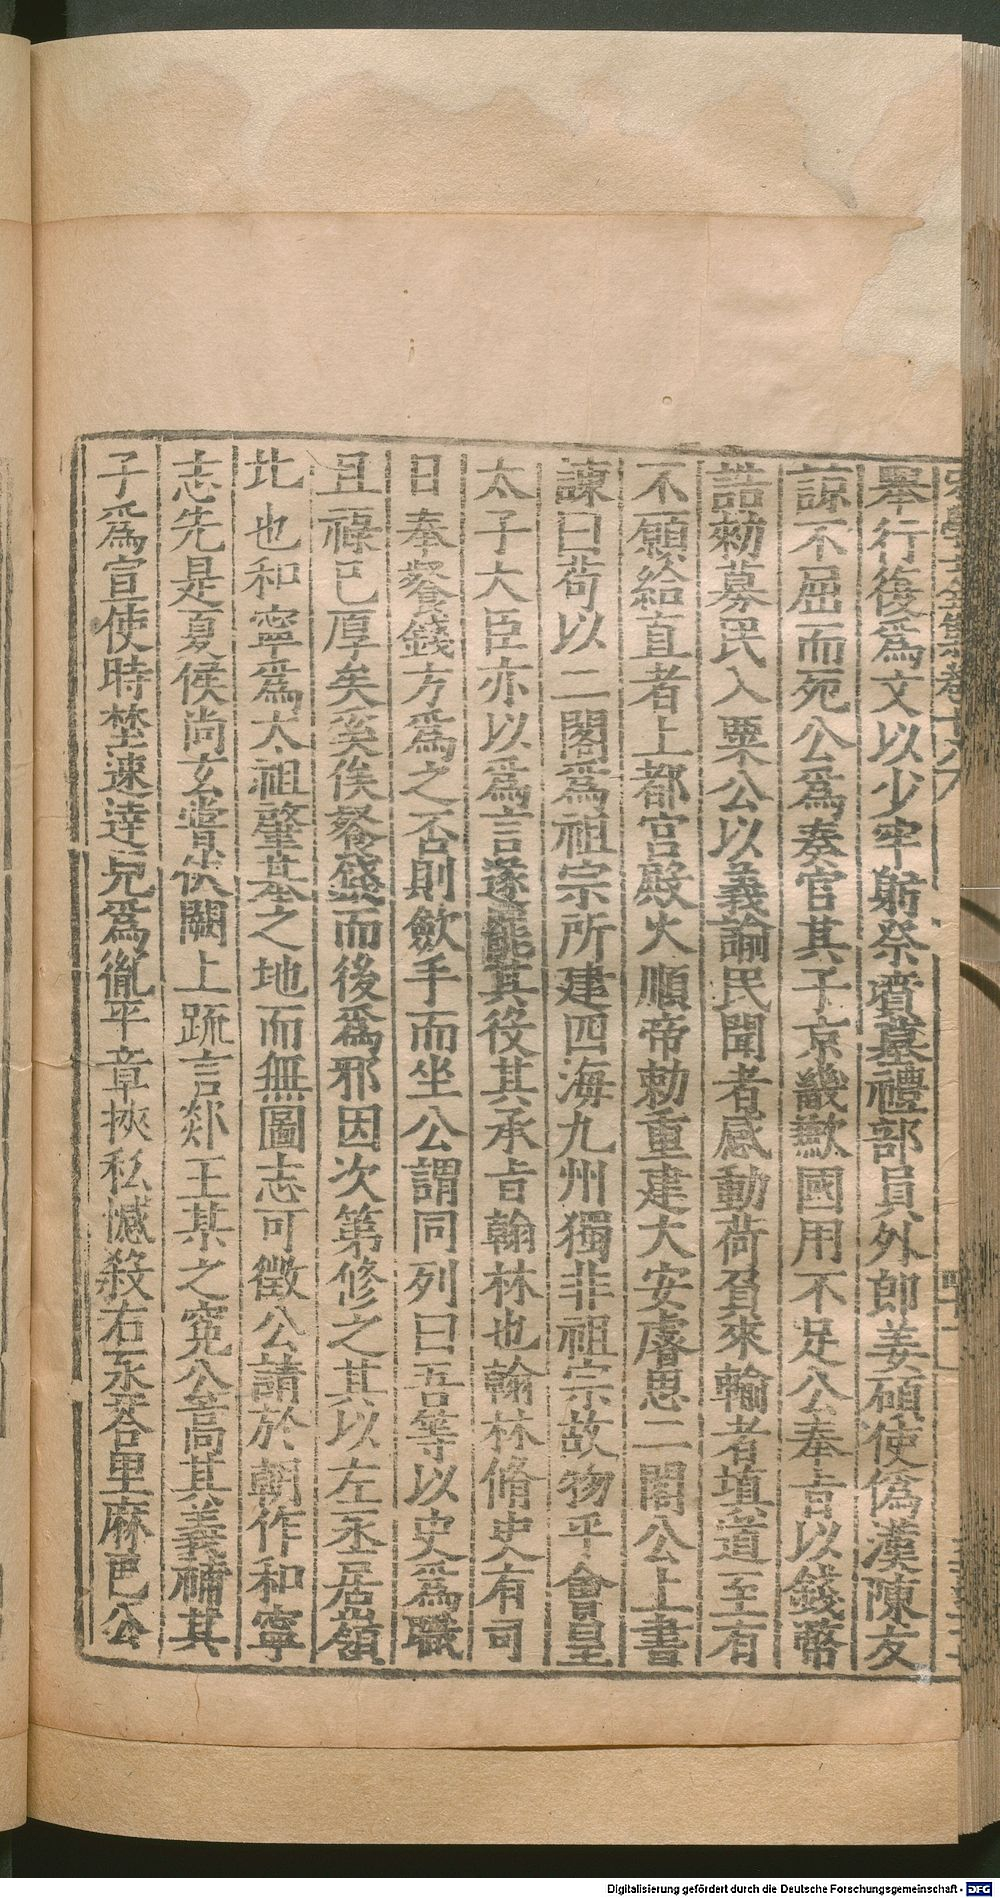 舉行復爲文以少牢躬祭賁墓禮部員外郎姜碩使僞漢陳友
諒不屈而死公爲奏官其子京畿歉國用不足公奉旨以錢幣
誥勑募民入粟公以義諭民聞者感動荷負來輸者填道至有
不願給直者上都宫殿火順帝勅重建大安睿思二閣公上書
諫曰苟以二閣爲祖宗所建四海九州獨非祖宗故物乎會皇
太子大臣亦以爲言遂罷其役其承旨翰林也翰林脩史有司
日奉餐錢方爲之否則歛手而坐公謂同列曰吾等以史爲職
且祿已厚矣奚俟餐錢而後爲邪因次第修之其以左丞居嶺
北也和寧爲太祖肇基之地而無圖志可徵公請於朝作和寧
志先是夏侯尚玄嘗伏闕上疏言郯王某之寃公高其義補其
子爲宣使時埜速達兒爲徹平章挾私憾殺右丞荅里麻巴公
Digitalisierung gefördert durch die Deutsche Forschungsgemeinschaft - DFG